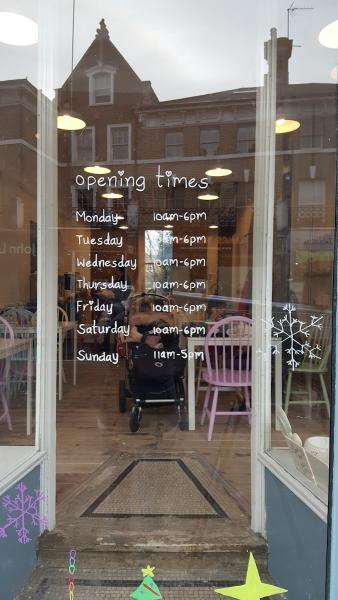 opening times
Monday 10am-6pm
Tuesday 10am-6pm
Wednesday 10am-6pm
Thursday 10am-6pm
Friday 10am-6pm
Saturday 10am-6pm
Sunday 11am-5pm